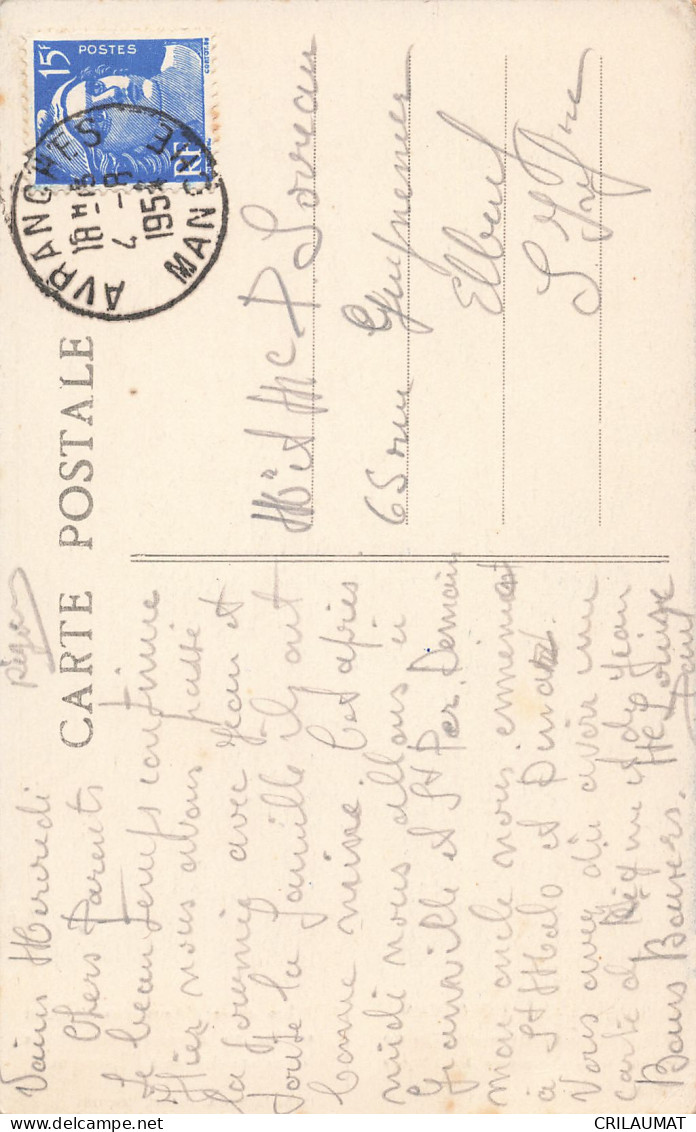 15F
POSTES
RF
AVRANCHES
18H
4 -8
1954
MANCHE
CARTE POSTALE
Mr et Me P Loreau
65 rue Guynemer
Elbeuf
S Infre
Vains Mercredi
Chers Parents
Le beau temps continue
Hier nous avons passé
la journée avec Jean et
toute la famille ils ont
bonne mine. Cet après
midi nous allons à
Granville et St Per. Demain
mon oncle nous emmènent
à St Malo et Dinard
Vous avez dû avoir une
carte de et de Jean
Bons Baisers. Me Louise
CRILAUMAT